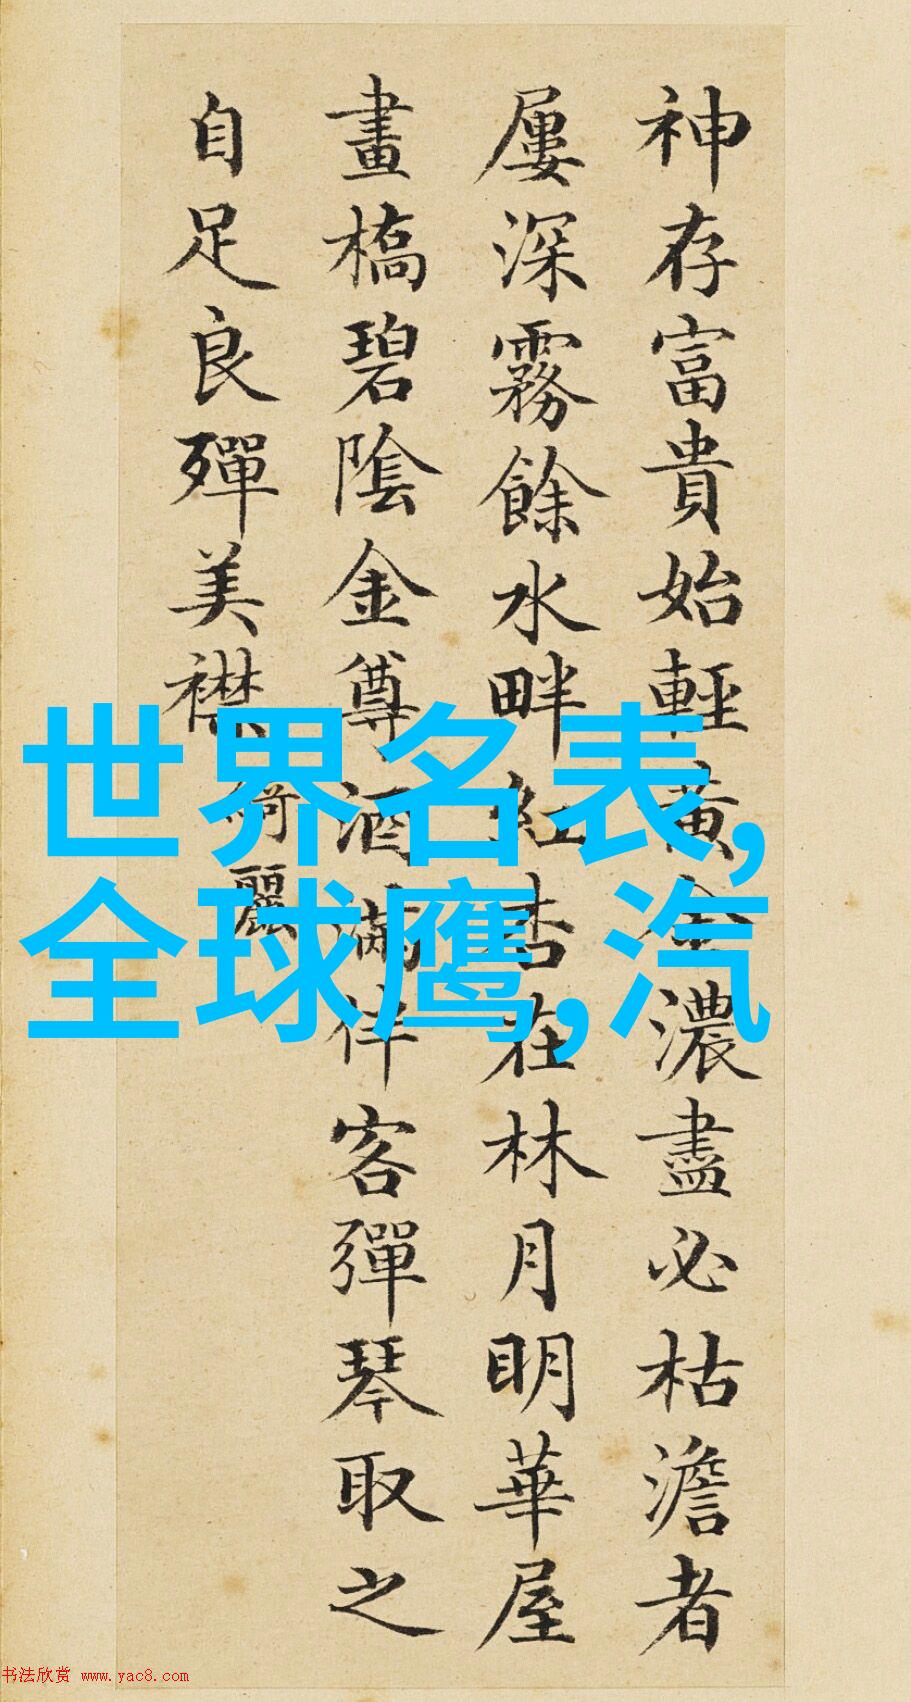 神存富貴始輕黃金濃盡必枯澹者
屢深霧餘水畔紅杏在林月明華屋
畫橋碧陰金尊酒滿伴客彈琴取之
自足良殫美襟
綺麗
世界名表,
全球鹰,汽
书法欣赏 www.yac8.com